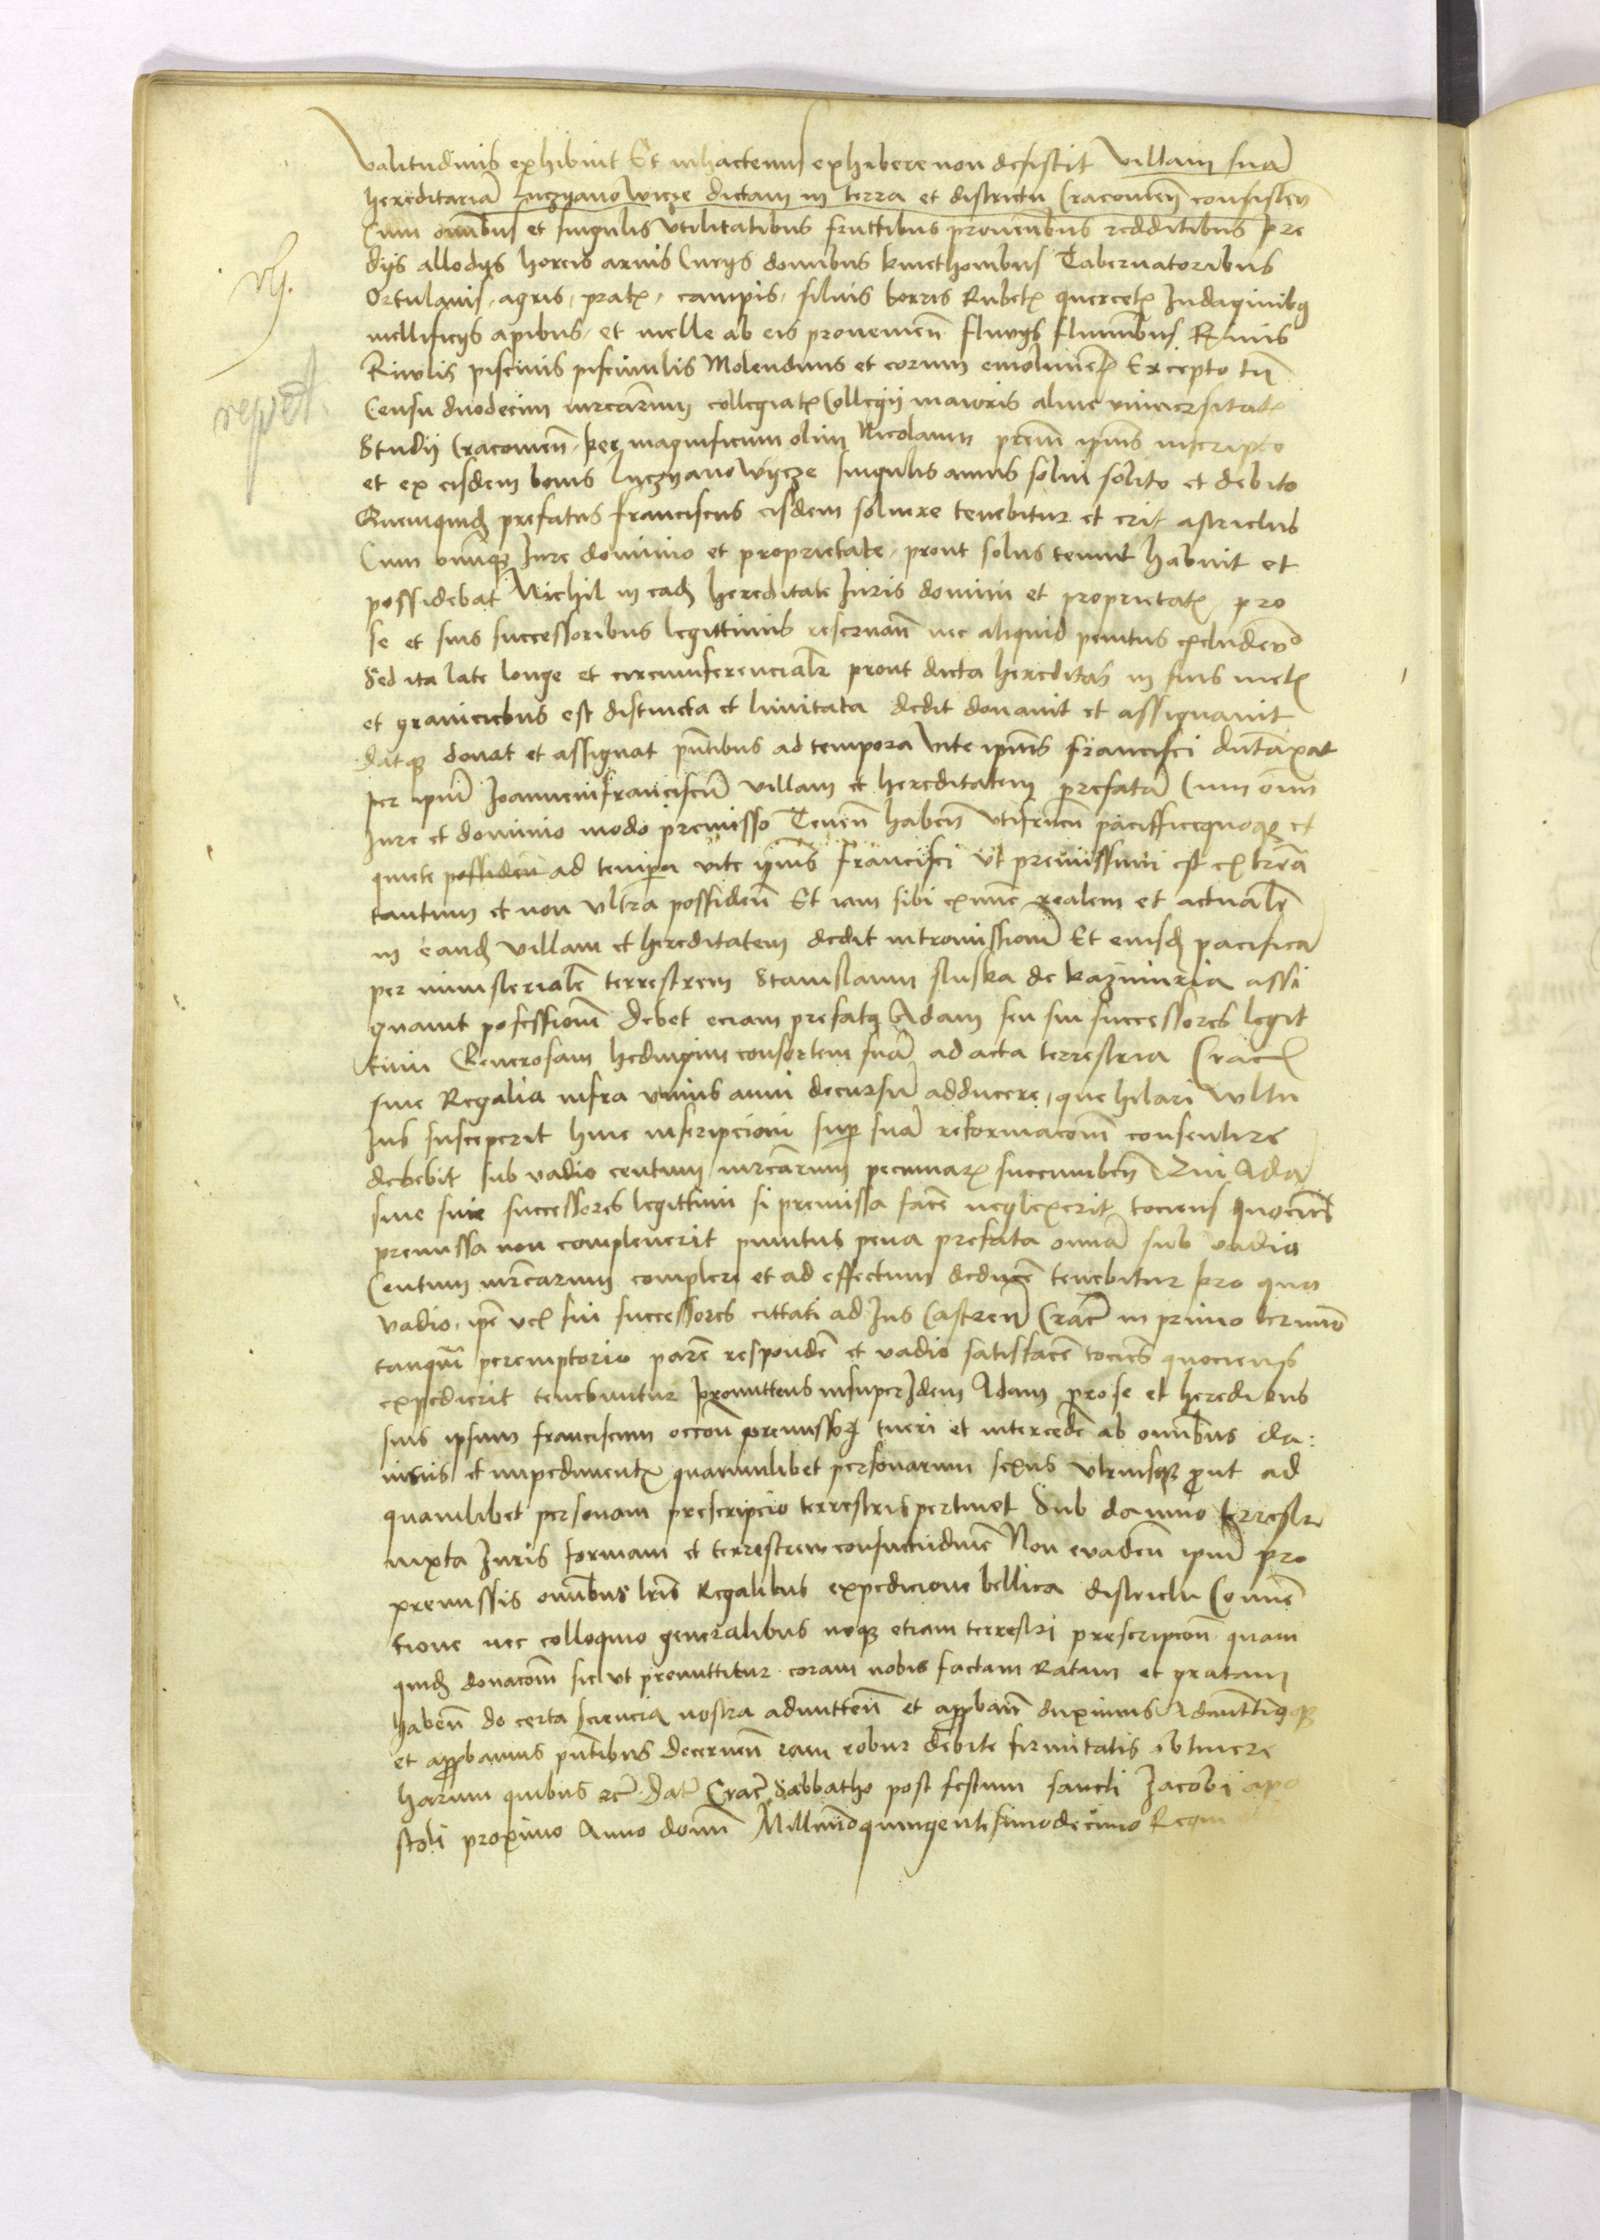 valitudinis exhibuit Et inhactenus exhibere non desistit Villam suā
hereditariā Luczyanowicze dictam in terra et districtu Cracovieñ consisteñ
Cum omnibus et singulis utilitatibus fruttibus proventibus redditibus pre
dijs allodys horeis arvis Curys domibus kmethonibus Tabernatoribus
Ortulanis, agris, prat, campis, silvis borris Rubet quercet Indaginibq
mellificys apibus, et melle ab eis provenieñ fluvys fluminibus Rivis
Rivulis piscinis piscinulis Molendinis et eorum emolumen Excepto tñ
Censu duodecim mrcarum collegiat Collegij maioris alme universitat
Studij Cracovieñ per magnificum olim Nicolaum prem ipius inscripto
et ex eisdem bonis Lyczyanowycze singulis annis solui solito et debito
Quemquid prefatus Franciscus eisdem soluere tenebitur et erit astrictus
Cum omniq Iure dominio et proprietate, prout solus tenuit habuit et
possidebat Nichil in ead hereditate Iuris dominii et proprietat pro
se et suis successoribus legittimis reservañ nec aliquid penitus excludeñ
Sed ita late longe et circumferencialr prout dicta hereditas in suis met
et graniciebus est distincta et limitata dedit donavit et assignavit
datq donat et assignat pñtibus ad tempora vite ipius Francisci duntaxat
per ipm Joannem franciscū villam et hereditatem prefatā Cum omi
Iure et dominio modo premisso Teneñ habeñ utifrueñ pacifficequoq et
quiete possideñ ad tempora vite ipius Francisci ut premissum est
tantum et non ultra possideñ Et iam sibi exnunc realem et actualē
in eand villam et hereditatem dedit intromissionē Et eiusd pacificā
per ministerialē terrestrem Stanislaum sluska de kazimiria assi
gnavit possessionē Debet eciam prefatq Adam seu sui successores legit
timi Generosam hedvigim consortem suā ad acta terrestria Crac
sive Regalia infra unius anni decursū adducere, que hilari vultu
Ius susceperit huic inscripcioni sup suā reformacoñ consentire
debebit sub vadio centum mrcarum pecuniar succumbeñ Qui Adā
sive suie successores legittimi si premissa facē neglexerit tociens quociens
premissa non compleverit punitus pena prefata omnia sub vadio
Centum mrcarum complere et ad effectum deducē tenebitur pro quo
vadio, ipē vel sui successores cittati ad Ius Castreñ Crac in primo termino
tanquā peremptorio parē respondē et vadio satisfacē tociens quociens
expedierit tenebuntur Promittens insuper Idem Adam pro se et heredibus
suis ipsum franciscum occoñ premissoq tueri et intercedē ab omnibus
et impediment quarumlibet personarum sexus utriusq prout ad
quamlibet personam prescripcio terrestris pertinet Sub damno terrestri
iuxta Iuris formam et terrestrem consuetudinē Non evadeñ ipm pro
premissis omnibus lris Regalibus expedicione bellica districtu Conven
tione nec colloquio generalibus neq etiam terrestri prescripcoñ quam
quid donacoñ sic ut premittitur coram nobis factam Ratam et gratam
habeñ de certa sciencia nostra admitteñ et approbañ duximus Admittimqq
et approbamus pñtibus decerneñ eam robur debite firmitatis obtinere
harum quibus etc Dat Crac Sabbatho post festum sancti Jacobi apo
stoli proximo Anno domi Millimoquingentesimodecimo Regni